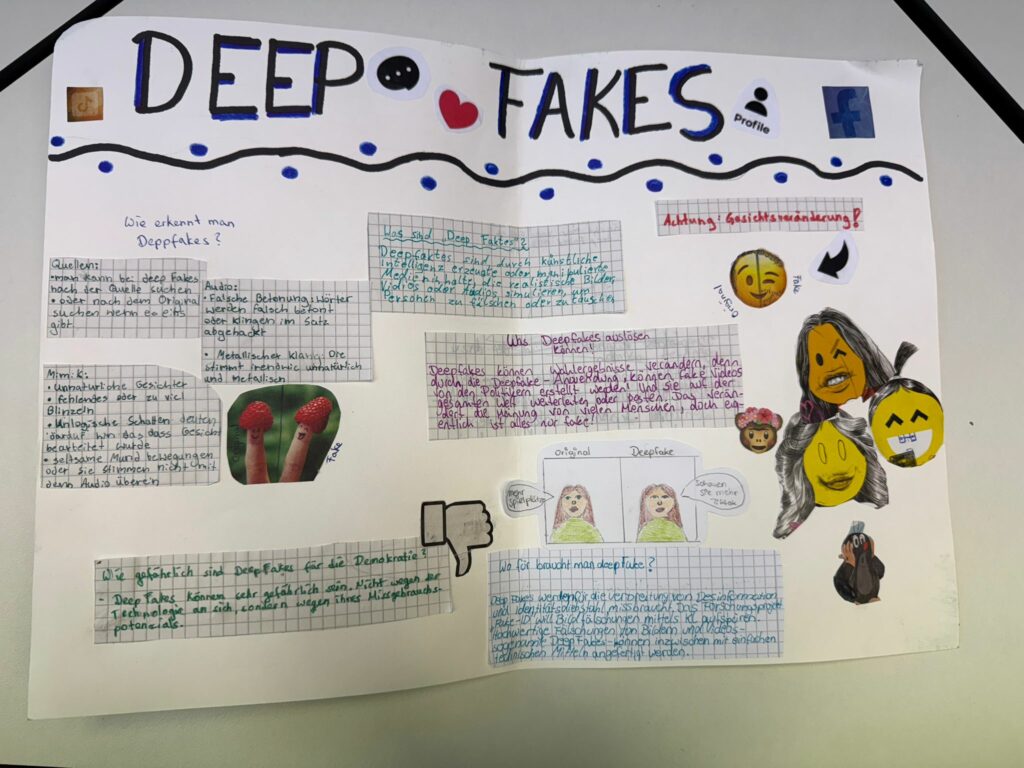 DEEP FAKES
Profile
Wie erkennt man
Deppfakes?
Quellen:
•man kann bei deep Fakes
nach der Quelle suchen
• oder nach dem Original
suchen wenn es eins
gibt.
Audio:
• Falsche Betonung: Wörter
werden falsch betont
oder klingen im Satz
abgehackt
• Metallischer Klang: Die
stimmt irendwie unnatürlich
und Metallisch
Mimik:
• Unnatürliche Gesichter
• fehlendes oder zu viel
Blinzeln
• Unlogische Schatten deuten
darauf hin das dass Gesicht
bearbeitet wurde
• seltsame Mund bewegungen
oder sie stimmen nicht mit
dem Audio überein
Original
Fake
Was sind „Deep Faktes"?
Deepfaktes sind durch künstliche
intelligenz erzeugte oder manipulierde
Medieninhalte, die realistische Bilder,
Videos oder Audios simulieren, um
Personen zu fälschen oder zu täuschen
Was Deepfakes auslösen
können!
Deepfakes können Wahlergebnisse verändern, denn
durch die Deepfake-Anwendung können fake Videos
von den Politikern erstellt werden! Und sie auf der
gesamten Welt weiterleiten oder posten. Das verän-
dert die Meinung von vielen Menschen, doch eig-
entlich ist alles nur fake!
Original Deepfake
mehr
Spielplätze
Schauen
sie mehr
Tiktok
Achtung! Gesichtsveränderung!
Original
Fake
Wie gefährlich sind DeepFakes für die Demokratie?
- Deep Fakes können sehr gefährlich sein. Nicht wegen der
Technologie an sich, sondern wegen ihres Missgebrauchs-
potenzials.
Wo für braucht man deepfake?
Deep Fakes werden für die Verbreitung von Desinformation
und Identitätsdiebstahl missbraucht. Das Forschungsprojekt
Fake-ID will Bildfälschungen mittels KI aufspüren.
Hochwertige Fälschungen von Bildern und Videos -
sogenannte DeepFakes - können inzwischen mit einfachen
technischen Mitteln angefertigt werden.